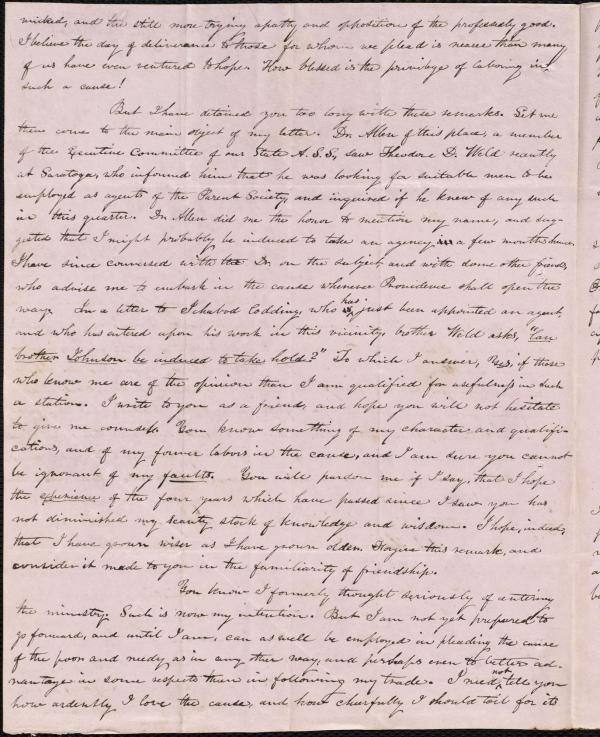 wicked, and the still more trying apathy and opposition of the professedly good.
I believe the day of deliverance to those for whom we plead is nearer than many
of us have even ventured to hope. How blessed is the privilege of laboring in
such a cause!
But I have detained you too long with these remarks. Let me
then come to the main object of my letter. Dr. Allen of this place, a member
of the Executive Committee of our State A.S.S, saw Theodore D. Weld recently
at Saratoga, who informed him that he was looking for suitable men to be
employed as agents of the Parent Society, and inquired if he knew of any such
in this quarter. Dr. Allen did me the honor to mention my name, and sug-
gested that I might probably be induced to take an agency in a few months hence.
I have since conversed with the Dr. on the subject, and with some other friends,
who advise me to embark in the cause whenever Providence shall open the
way. In a letter to Ichabod Codding, who has just been appointed an agent,
and who has entered upon his work in this vicinity, brother Weld asks, "Can
brother Johnson be induced to take hold?" To which I answer, Yes, if those
who know me are of the opinion that I am qualified for usefulness in such
a station. I write to you as a friend, and hope you will not hesitate
to give me counsel. You know something of my character and qualifi-
cations, and of my former labors in the cause, and I am sure you cannot
be ignorant of my faults. You will pardon me if I say, that I hope
the experience of the four years which have passed since I saw you has
not diminished my scanty stock of knowledge and wisdom. I hope, indeed,
that I have grown wiser as I have grown older. Forgive this remark, and
consider it made to you in the familiarity of friendship.
You know I formerly thought seriously of entering
the ministry. Such is now my intention. But I am not yet prepared to
go forward, and until I am, can as well be employed in pleading the cause
of the poor and needy, as in any other way, and perhaps even to better ad-
vantage in some respects than in following my trade. I need not tell you
how ardently I love the cause, and how cheerfully I should toil for its